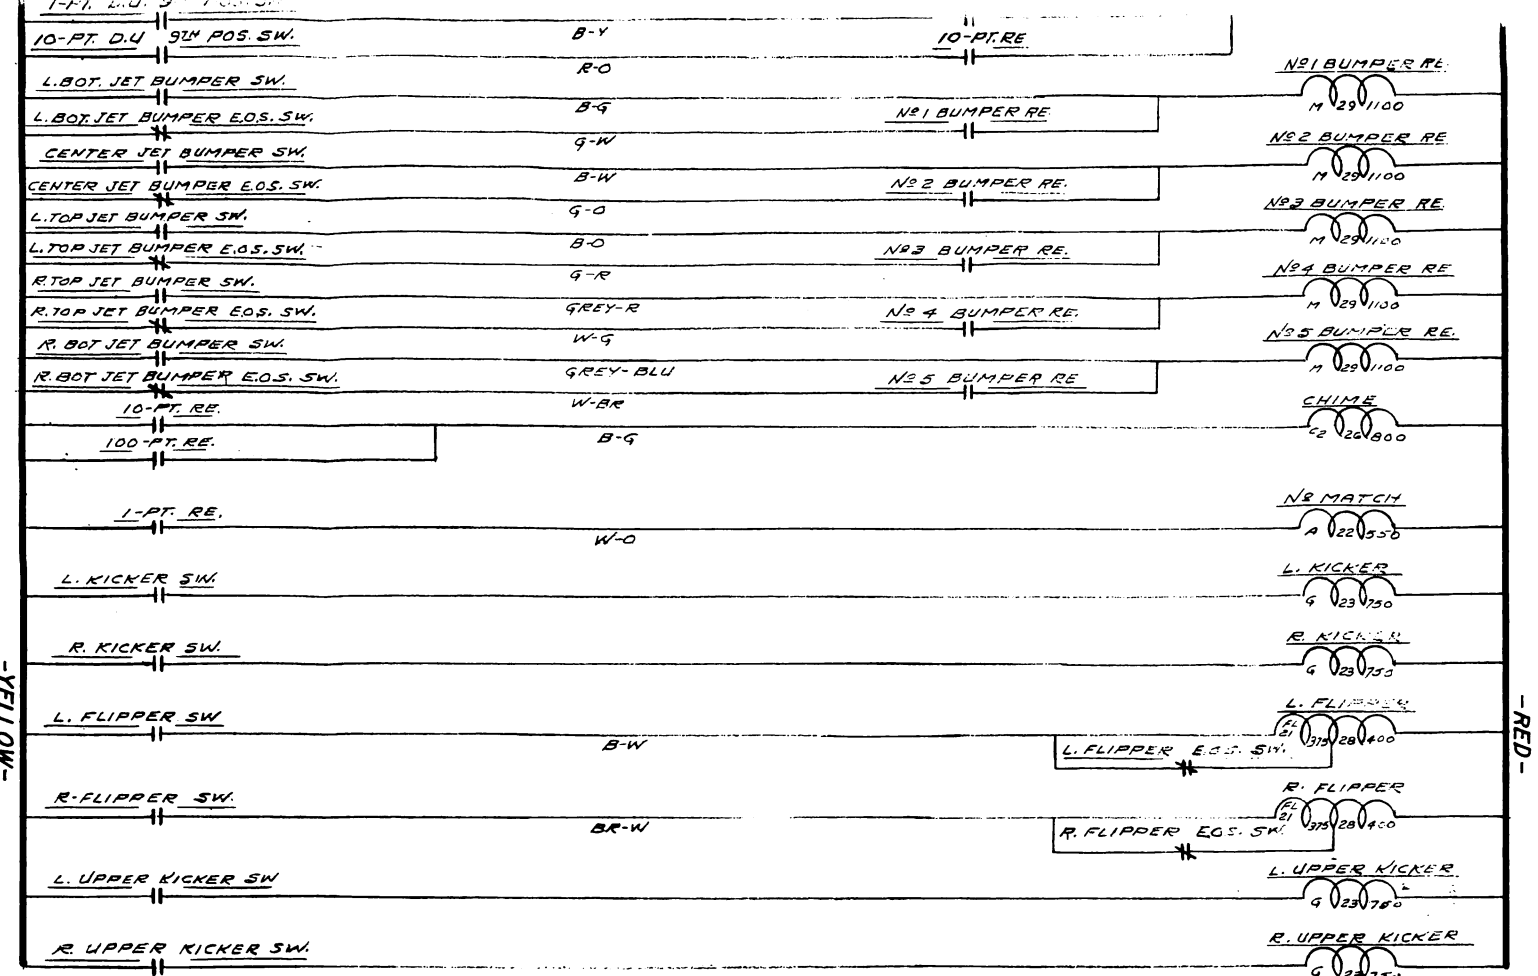 B-Y
10-PT. D.U 9TH POS. SW. 10-PT. RE
R-O
L. BOT. JET BUMPER SW. Nº 1 BUMPER RE.
B-G M 29 1100
L. BOT. JET BUMPER E.O.S. SW. Nº 1 BUMPER RE
G-W
CENTER JET BUMPER SW. Nº 2 BUMPER RE
B-W M 29 1100
CENTER JET BUMPER E.O.S. SW. Nº 2 BUMPER RE.
G-O
L. TOP JET BUMPER SW. Nº 3 BUMPER RE.
B-O M 29 1100
L. TOP JET BUMPER E.O.S. SW. Nº 3 BUMPER RE.
G-R
R. TOP JET BUMPER SW. Nº 4 BUMPER RE
GREY-R M 29 1100
R. TOP JET BUMPER E.O.S. SW. Nº 4 BUMPER RE.
W-G
R. BOT JET BUMPER SW. Nº 5 BUMPER RE.
GREY-BLU M 29 1100
R. BOT JET BUMPER E.O.S. SW. Nº 5 BUMPER RE
W-BR
10-PT. RE. CHIME
B-G C2 26 800
100-PT. RE.
1-PT. RE. Nº MATCH
W-O A 22 550
L. KICKER SW. L. KICKER
G 23 750
R. KICKER SW. R. KICKER
G 23 750
-YELLOW-
-RED-
L. FLIPPER SW L. FLIPPER
B-W FL 21 375 28 400
L. FLIPPER E.O.S. SW.
R-FLIPPER SW. R. FLIPPER
BR-W FL 21 375 28 400
R. FLIPPER E.O.S. SW.
L. UPPER KICKER SW L. UPPER KICKER
G 23 750
R. UPPER KICKER SW. R. UPPER KICKER
G